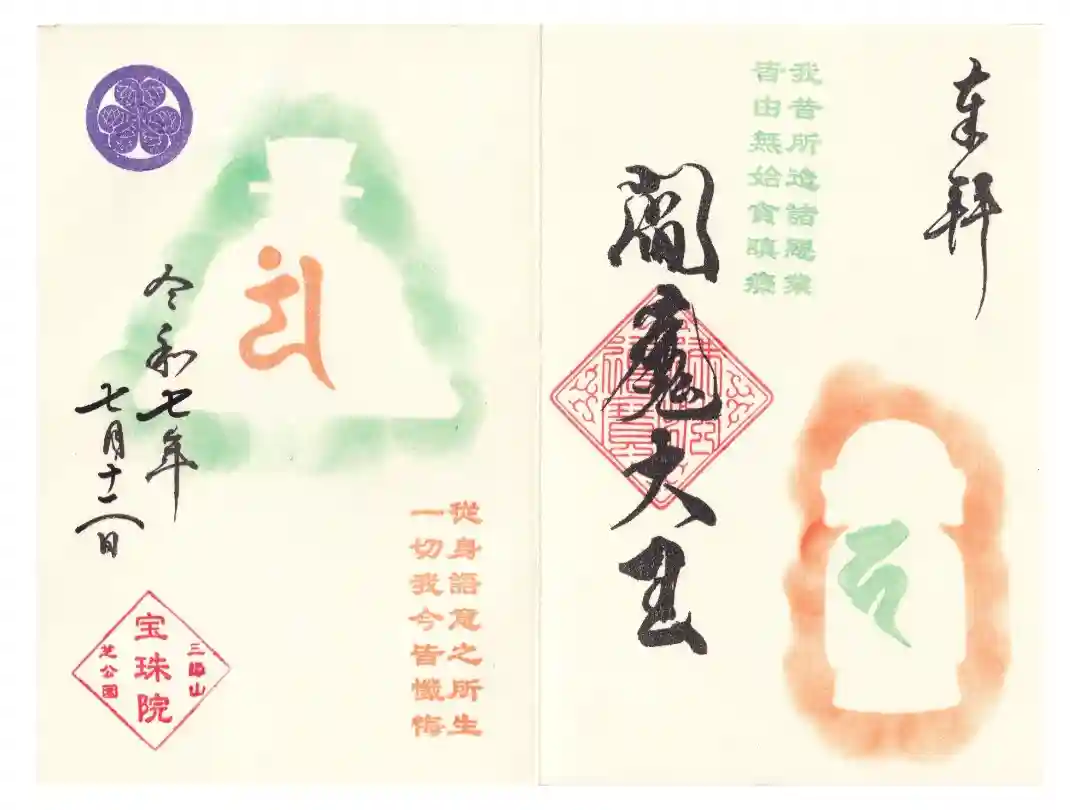 奉拝
我昔所造諸惡業
皆由無始貪瞋癡
閻魔大王
從身語意之所生
一切我今皆懺悔
令和七年
七月十二日
三縁山
宝珠院
芝公園